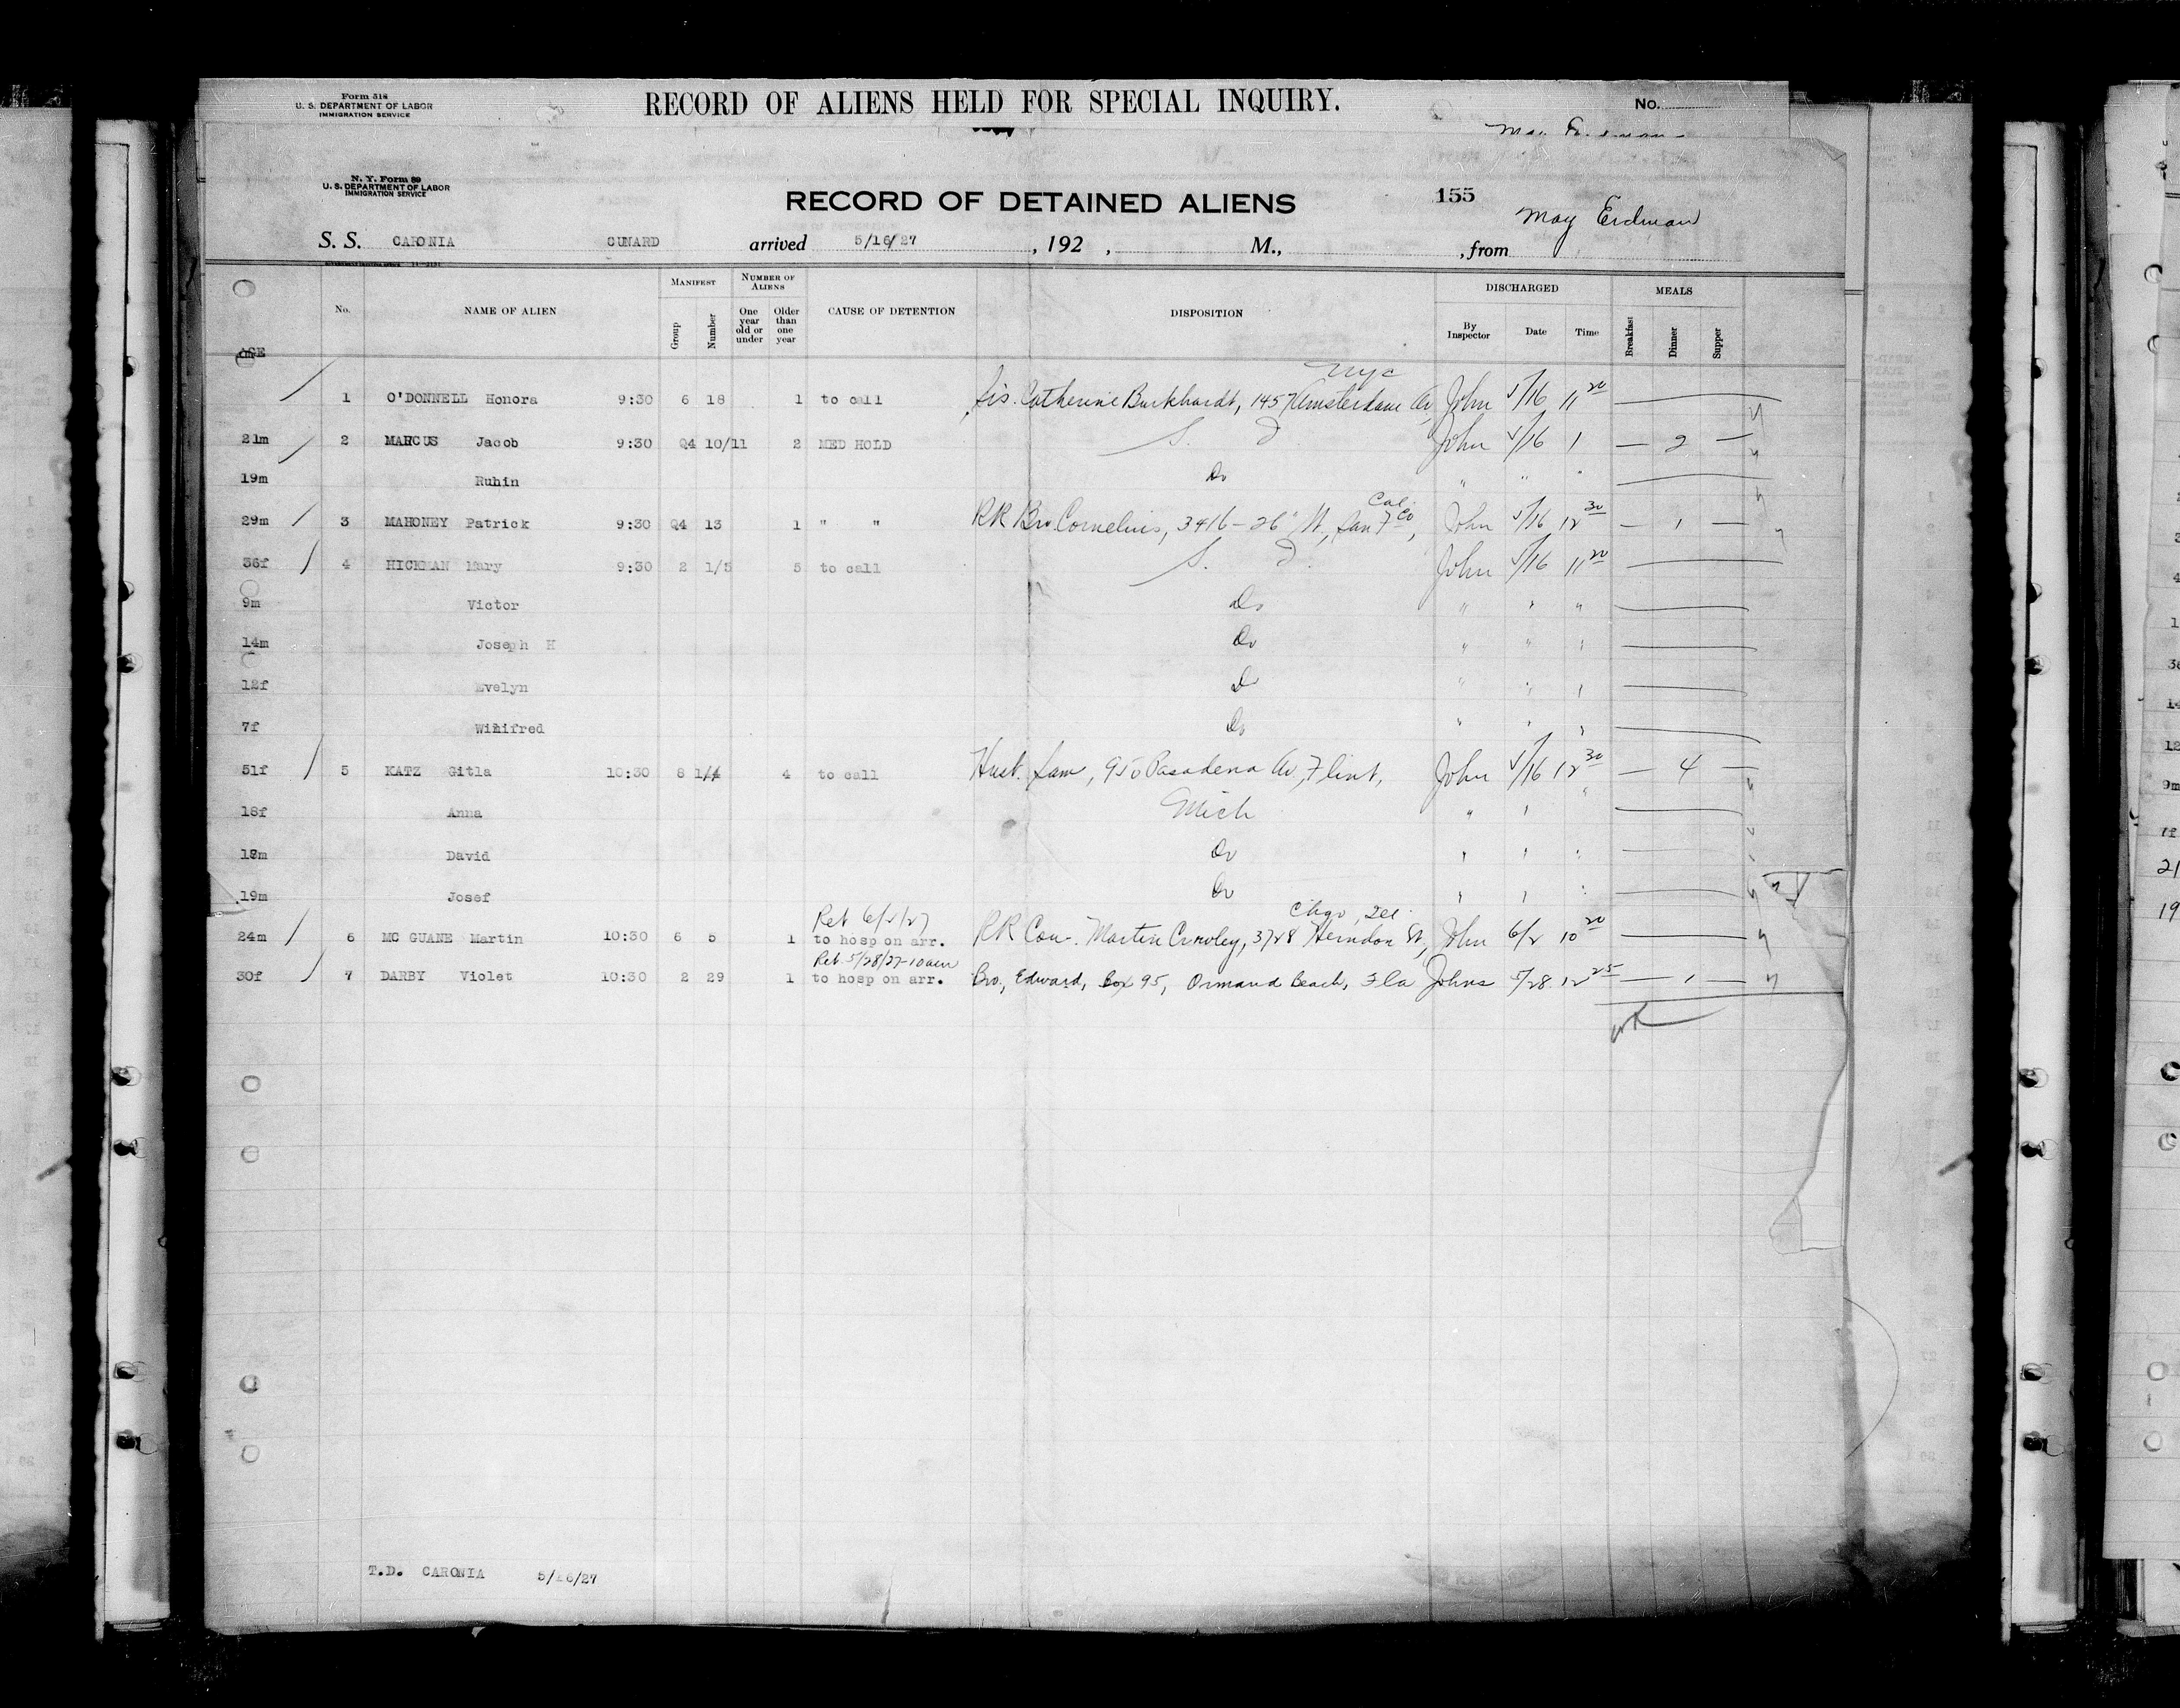 Form 518
U. S. DEPARTMENT OF LABOR
IMMIGRATION SERVICE
RECORD OF ALIENS HELD FOR SPECIAL INQUIRY.
No.
N. Y. Form 89
U. S. DEPARTMENT OF LABOR
IMMIGRATION SERVICE
RECORD OF DETAINED ALIENS
155
May Erdman
S. S. CARONIA CUNARD arrived 5/16/27 , 192 , M., , from
AGE No. NAME OF ALIEN MANIFEST Group Number NUMBER OF ALIENS One year old or under Older than one year CAUSE OF DETENTION DISPOSITION DISCHARGED By Inspector Date Time MEALS Breakfast Dinner Supper
nyc
1 O'DONNELL Honora 9:30 6 18 1 to call Sis. Catherine Burkhardt, 1457 Amsterdam Av, John 5/16 11 20
21m 2 MARCUS Jacob 9:30 Q4 10/11 2 MED HOLD S. D John 5/16 1 — 2 —
19m Ruhin Do " " "
Cal.
29m 3 MAHONEY Patrick 9:30 Q4 13 1 " " RR Bro Cornelius, 3416 - 26" St., San F Co, John 5/16 12 30 — 1 —
36f 4 HICKMAN Mary 9:30 2 1/5 5 to call S. D. John 5/16 11 20
9m Victor Do " " "
14m Joseph H Do " " "
12f Evelyn Do " " "
7f Winifred Do " " "
51f 5 KATZ Gitla 10:30 8 1/4 4 to call Hust. Sam, 950 Pasadena Av, Flint, John 5/16 12 30 — 4 —
18f Anna Mich " " "
David Do " " "
19m Josef Do " " "
Ret 6/2/27 Chgo, Ill.
24m 6 MC GUANE Martin 10:30 6 5 1 to hosp on arr. RR Cou. Martin Crowley, 3728 Herndon St, John 6/2 10 20
Ret. 5/28/27-10am
30f 7 DARBY Violet 10:30 2 29 1 to hosp on arr. Bro, Edward, Box 95, Ormand Beach, Fla Johns 5/28 12 25 — 1 —
T.D. CARONIA 5/16/27